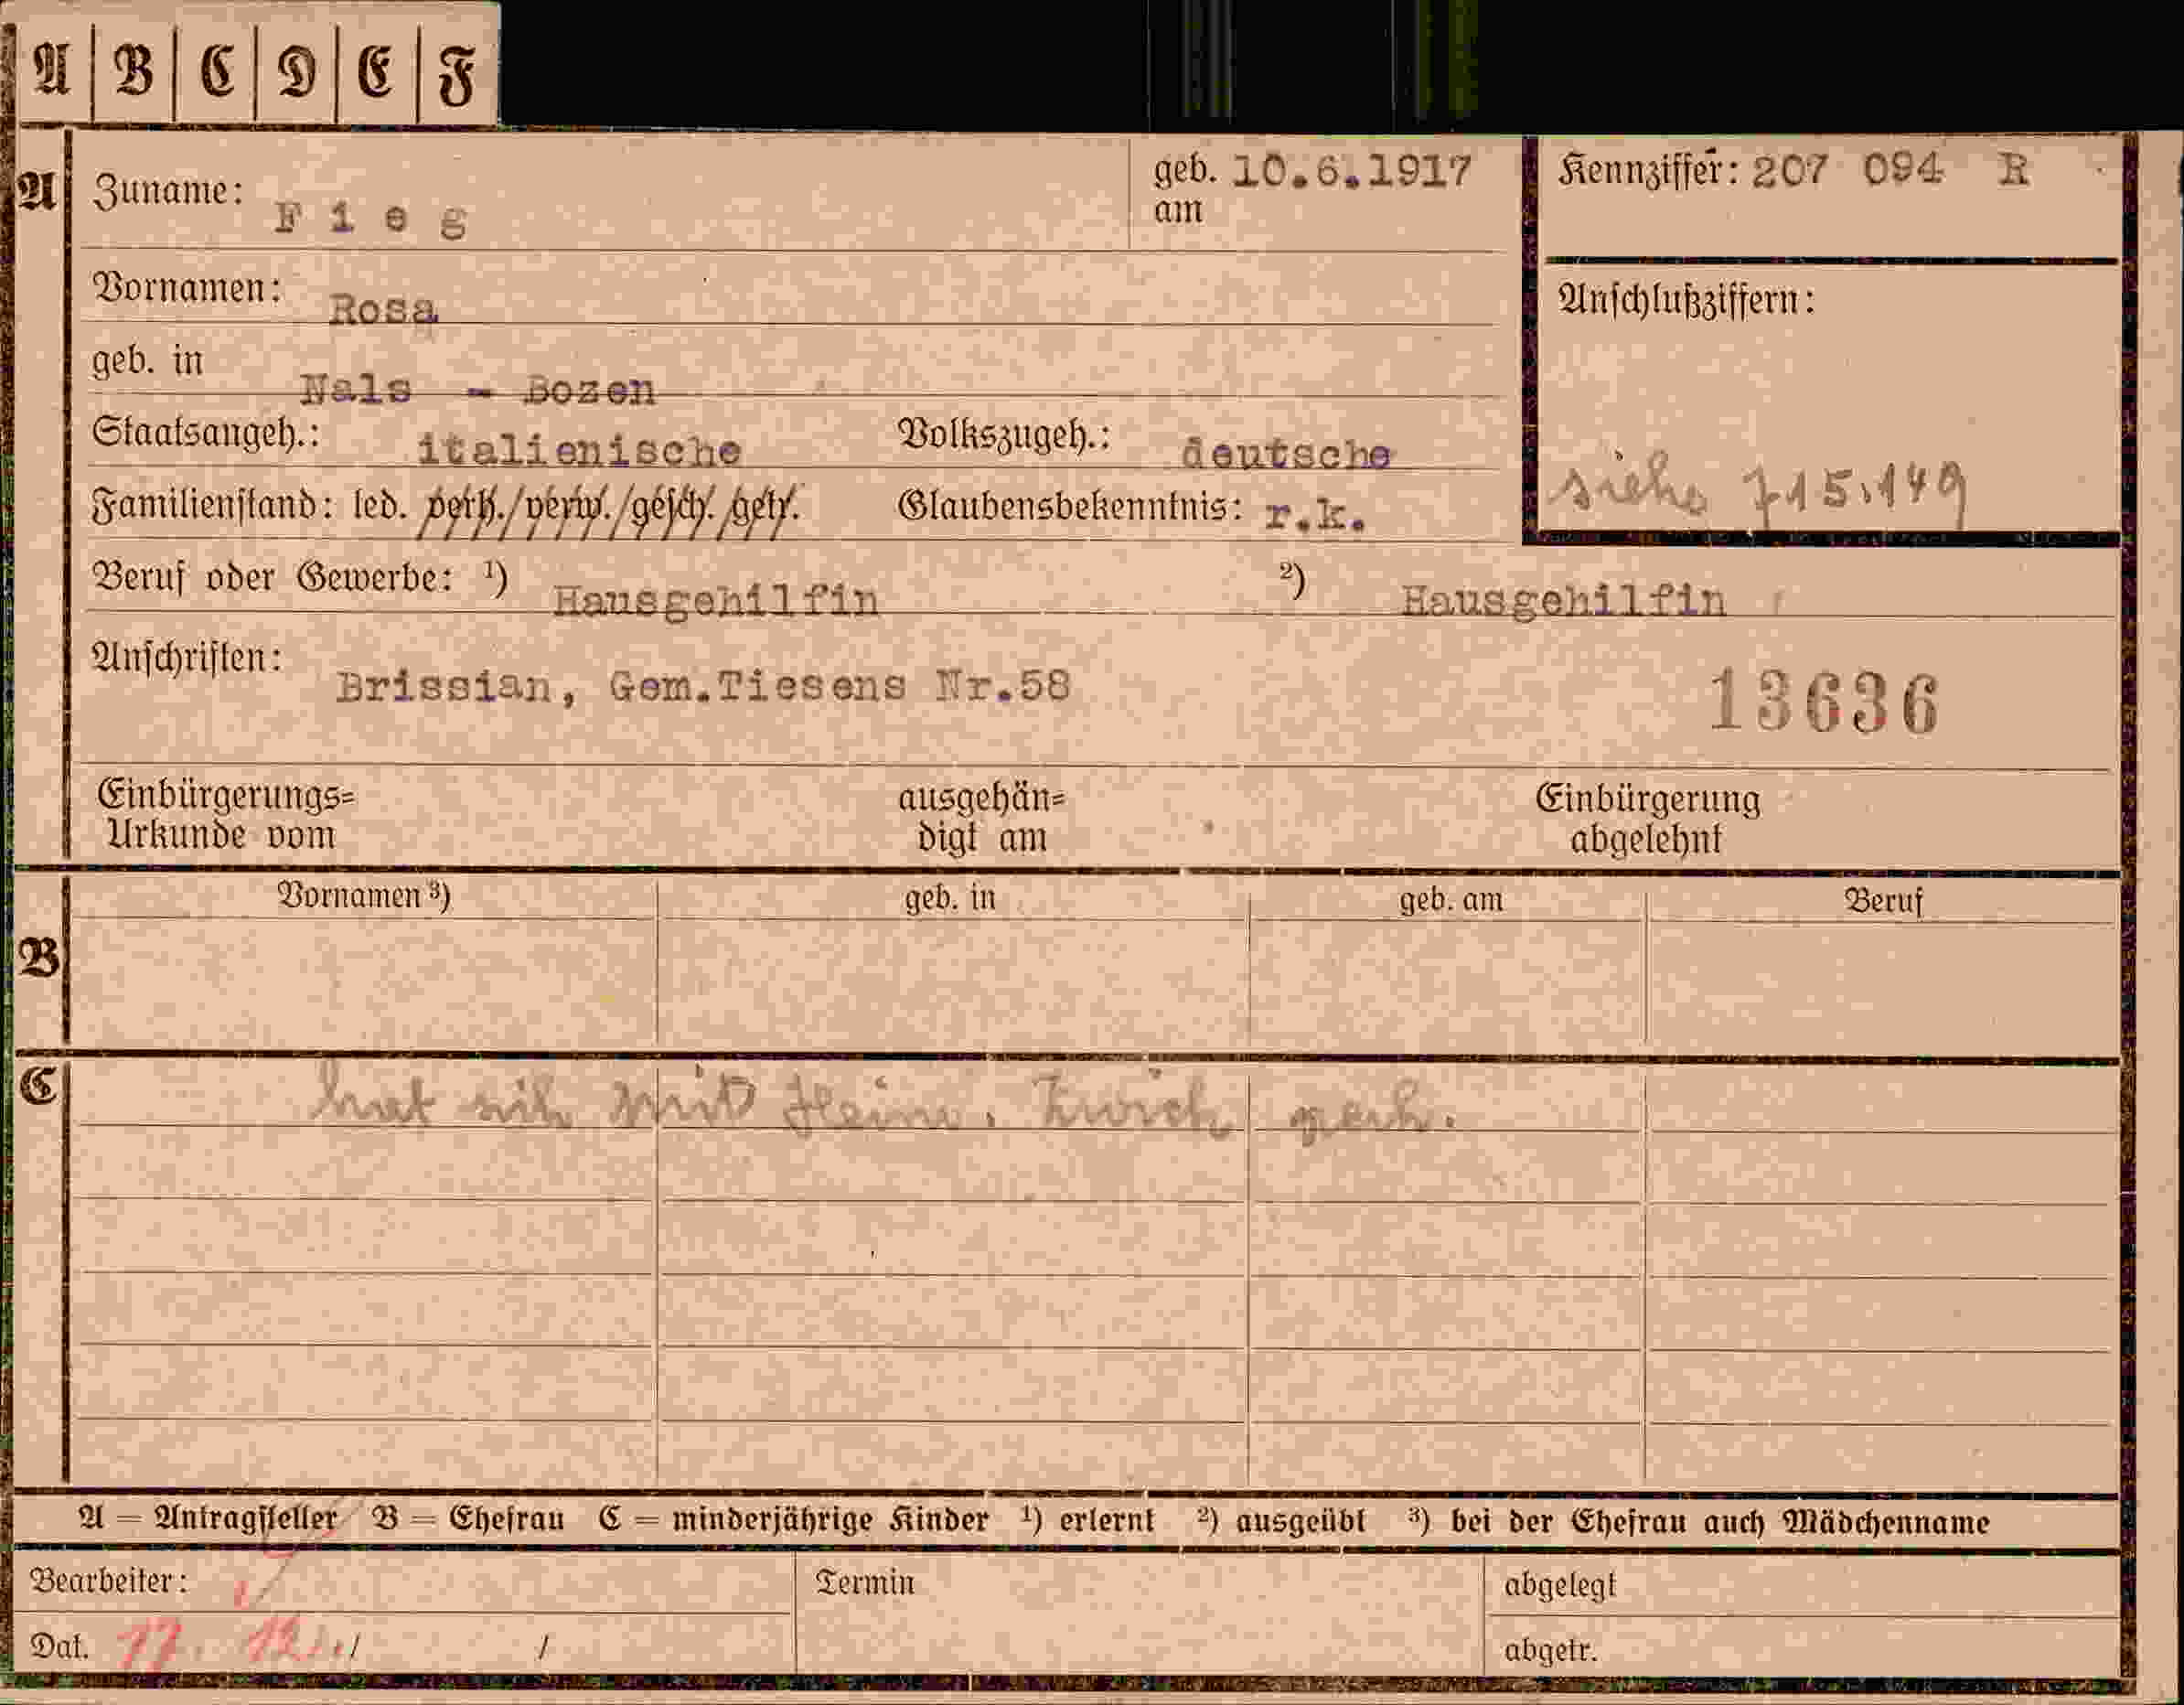 A B C D E F
A Zuname: Fieg geb. am 10.6.1917 Kennziffer: 207 094 R
Vornamen: Rosa Anschlußziffern:
geb. in Nals - Bozen
Staatsangeh.: italienische Volkszugeh.: deutsche
siehe 715.149
Familienstand: led. verh./verw./gesch./getr. Glaubensbekenntnis: r.k.
Beruf oder Gewerbe: ¹) Hausgehilfin ²) Hausgehilfin
Anschriften: Brissian, Gem.Tiesens Nr.58
13636
Einbürgerungs= ausgehän= Einbürgerung
Urkunde vom digt am abgelehnt
B Vornamen ³) geb. in geb. am Beruf
C hat sich mit Heinr. Zwick verh.
A = Antragsteller B = Ehefrau C = minderjährige Kinder ¹) erlernt ²) ausgeübt ³) bei der Ehefrau auch Mädchenname
Bearbeiter: Termin abgelegt
Dat. 17. 12. / / abgetr.